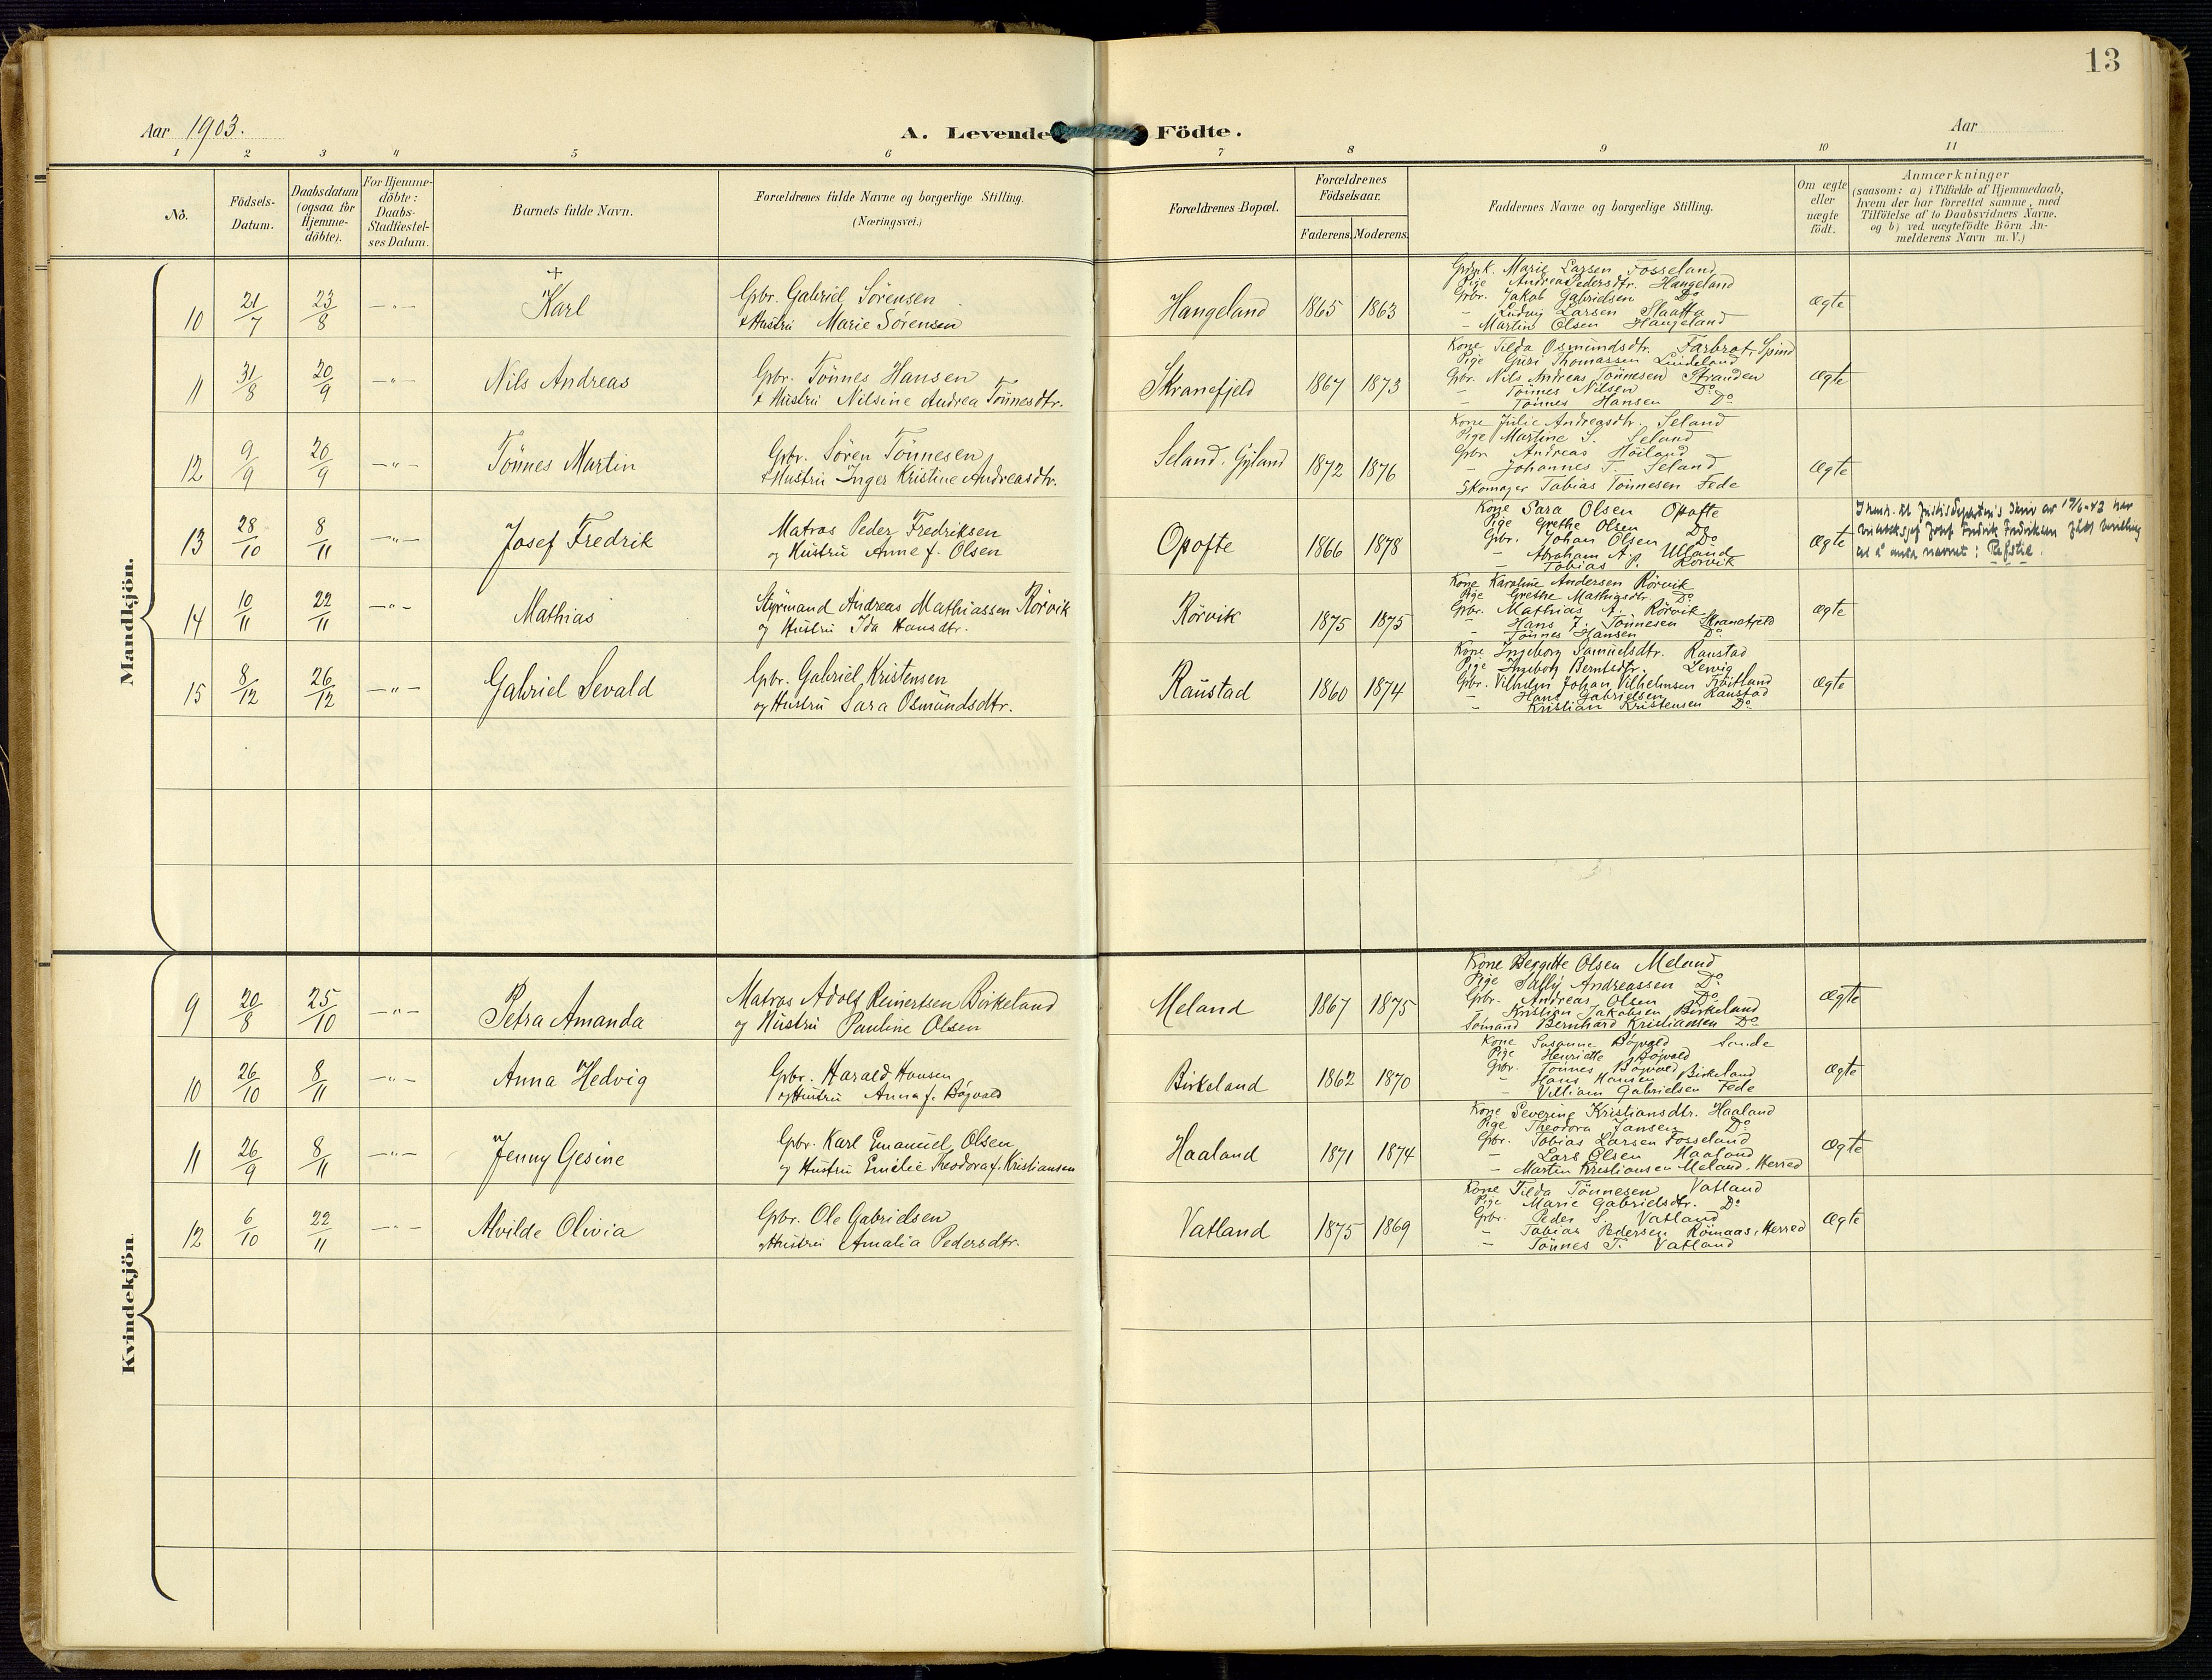 13
Aar 1903.
A. Levende Födte.
Aar
1 2 3 4 5 6 7 8 9 10 11
No.
Födsels-Datum.
Daabsdatum (ogsaa for Hjemme-döbte).
For Hjemme-döbte: Daabs-Stadfæstel-ses Datum.
Barnets fulde Navn.
Forældrenes fulde Navne og borgerlige Stilling.
(Næringsvei.)
Forældrenes Bopæl.
Forældrenes Födselsaar.
Faderens. Moderens.
Faddernes Navne og borgerlige Stilling.
Om ægte eller uægte födt.
Anmærkninger
(saasom: a) i Tilfælde af Hjemmedaab,
hvem der har forrettet samme, med
Tilföielse af to Daabsvidners Navne.
og b) ved uægtefödte Börn An-
melderens Navn m. V.)
Mandkjön.
10 21/7 23/8 —"— + Karl
Gbr. Gabriel Sörensen
& Hustru Marie Sörensen
Hangeland 1865 1863
Marie Larsen Fosseland
Pige Andrea Pedersdtr. Hangeland
Gbr. Jakob Gabrielsen Do
– Ludvig Larsen
– Martin Olsen Hangeland
Ægte
11 31/8 20/9 —"— Nils Andreas
Gbr. Tönnes Hansen
& Hustru Nilsine Andrea Tönnesdtr.
Skranefjeld 1867 1873
Kone Tilda Osmundsdtr. Farbrot, Spind
Pige Guri Thomassen Lindeland
Gbr. Nils Andreas Tönnesen Stranden
– Tönnes Nilsen Do
– Tönnes Hansen Do
Ægte
12 9/9 20/9 —"— Tönnes Martin
Gbr. Sören Tönnesen
& Hustru Inger Kristine Andreasdtr.
Seland, Gyland 1872 1876
Kone Julie Andreasdtr. Seland
Pige Martine S. Seland
Gbr Andreas Höiland
– Johannes T. Seland
Skomager Tobias Tönnesen Fede
Ægte
13 28/10 8/11 —"— Josef Fredrik
Matros Peder Fredriksen
og Hustru Anne f. Olsen
Opofte 1866 1878
Kone Sara Olsen Opofte
Pige Grethe Olsen Do
Gbr. Johan Olsen Do
– Abraham A. Ulland
– Tobias P. Rörvik
Ægte
Josef Fredrik Fredriksen fått
at navnet: Refstie.
14 10/11 22/11 —"— Mathias
Styrmand Andreas Mathiassen Rörvik
og Hustru Ida Hansdtr.
Rörvik 1875 1875
Kone Karoline Andersen Rörvik
Pige Grethe Mathiasdtr. Do
Gbr. Mathias A. Rörvik
– Hans J. Tönnesen Skranefjeld
– Tönnes Hansen Do
Ægte
15 8/12 26/12 —"— Gabriel Sevald
Gbr. Gabriel Kristensen
og Hustru Sara Osmundsdtr.
Raustad 1860 1874
Kone Ingeborg Samuelsdtr. Raustad
Pige Ingeborg Berntsdtr. Lervig
Gbr. Vilhelm Johan Vilhelmsen Tröitland
– Hans Gabrielsen Raustad
– Kristian Kristensen Do
Ægte
Kvindekjön
9 20/8 25/10 —"— Petra Amanda
Matros Adolf Reinertsen Birkeland
og Hustru Pauline Olsen
Meland 1867 1875
Kone Bergitte Olsen Meland
Pige Sally Andreassen Do
Gbr. Andreas Olsen Do
– Kristian Jakobsen Birkeland
Sömand Bernhard Kristiansen Do
Ægte
10 26/10 8/11 —"— Anna Hedvig
Gbr. Harald Hansen
og Hustru Anna f. Bögvald
Birkeland 1862 1870
Kone Susanne Bögvald Sande
Pige Henriette Bögvald
Gbr. Tönnes Bögvald
– Hans Hansen Birkeland
– Villiam Gabrielsen Fede
Ægte
11 26/9 8/11 —"— Jenny Gesine
Gbr. Karl Emanuel Olsen
og Hustru Emelie Theodora f. Kristiansen
Haaland 1871 1874
Kone Severine Kristiansdtr. Haaland
Pige Theodora Jansen Do
Gbr. Tobias Larsen Fosseland
– Lars Olsen Haaland
– Martin Kristiansen Meland, Herred
Ægte
12 6/10 22/11 —"— Alvilde Olivia
Gbr. Ole Gabrielsen
og Hustru Amalia Pedersdtr.
Vatland 1875 1869
Kone Tilda Tönnesen Vatland
Pige Marie Gabrielsdtr. Do
Gbr. Peder S. Vatland
– Tobias Pedersen Römaas, Herred
– Tönnes T. Vatland
Ægte